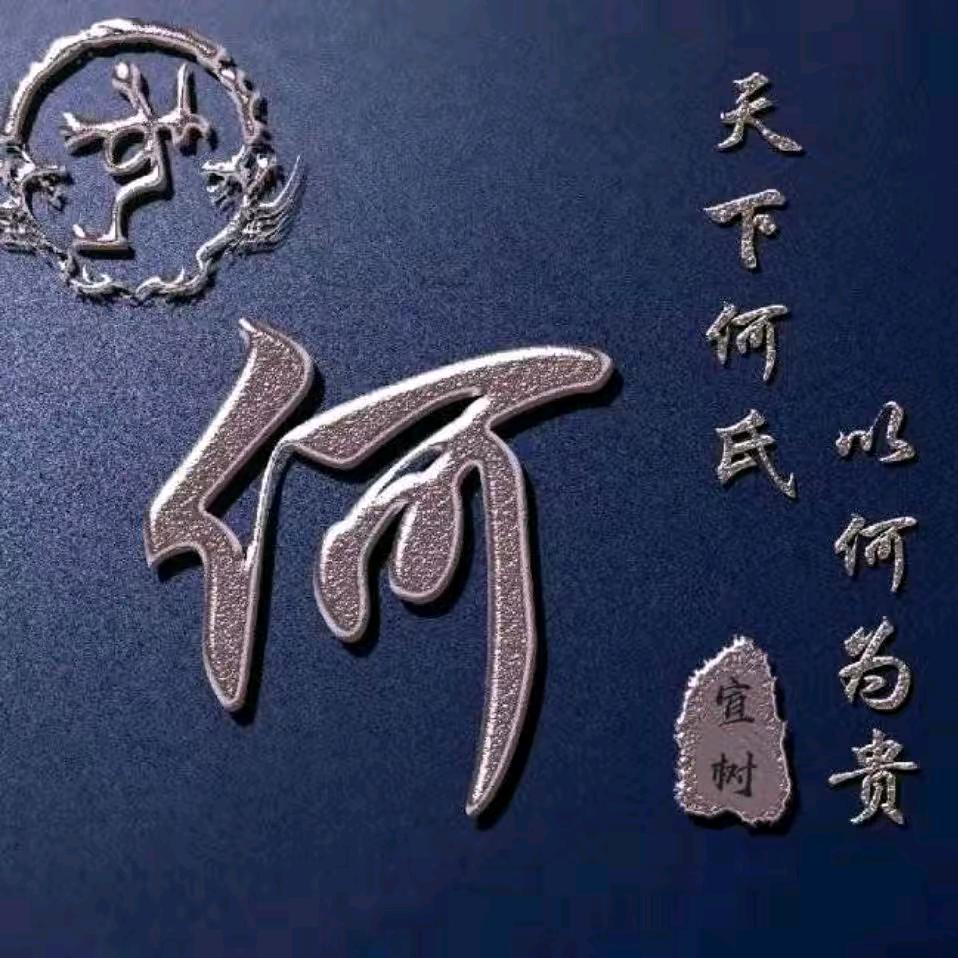 何
天下何氏
以何为贵
宜树